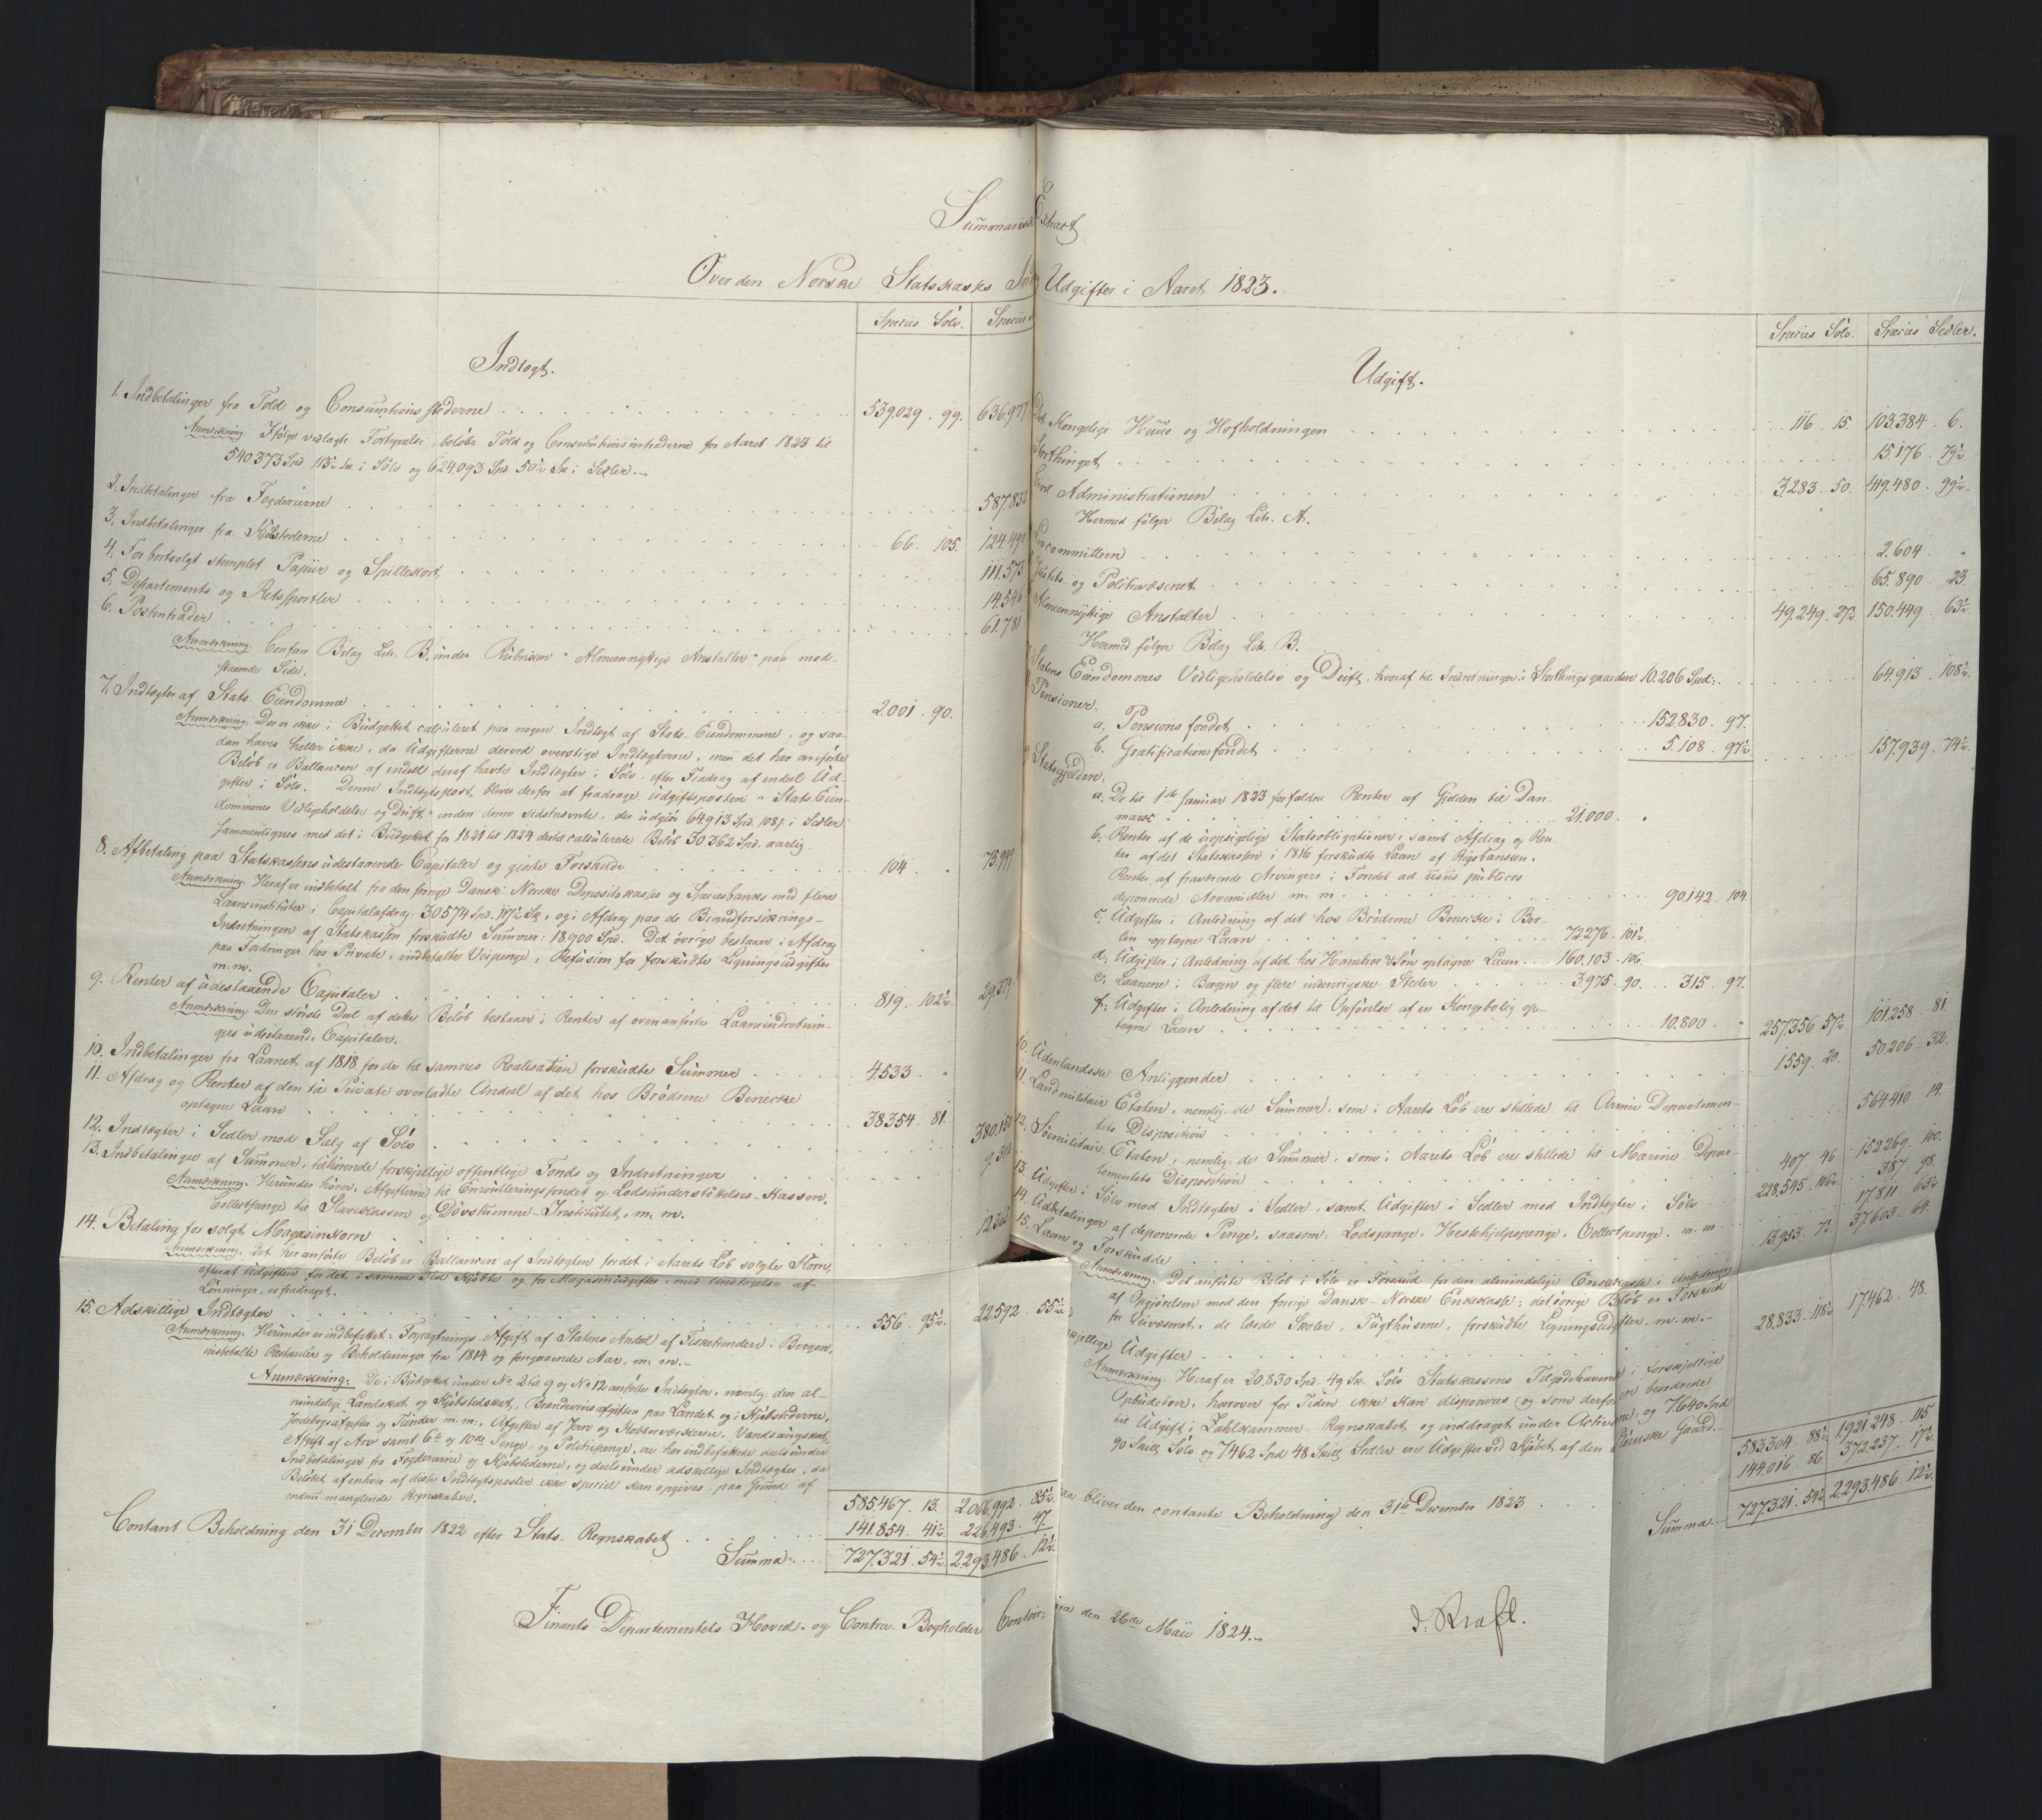 Summarisk Extract
Over den Norske Statskasses Ind Udgifter i Aaret 1823.
Species Sölv. Species
Indtægt.
1. Indbetalinger fra Told og Consumtionsstederne 539.029 . 99. 636.977
Anmærkning. Ifölge vedlagte Fortegnelse beløbe Told og Consumtionsintraderne for Aaret 1823 til
540.373 Spd. 113½ Sk. i Sölv og 624.093 Spd. 50½ Sk. i Sedler.
2. Indbetalinger fra Fogderierne 587.832
3. Indbetalinger fra Kjöbstederne 66 . 105. 124.491
4. For bortsolgt stemplet Papiir og Spillekort 111.573
5. Departements og Retssportler 14.546
6. Postintrader 61.781
Anmærkning. Confere Bilag Litr. B. under Rubriken "Almeennyttige Anstalter" paa mod-
staaende Side.
7. Indtægter af Stats Eiendomme 2.001 . 90.
Anmærkning: Der er ikke i Budgettet calculeret paa nogen Indtægt af Stats-Eiendommene, og saa-
dan haves heller ikke, da Udgifterne derved overstige Indtægterne, men det her anförte
Belöb er Ballancen af endeel deraf havte Indtægter i Sölv, efter Fradrag af endeel Ud-
gifter i Sölv. Denne Indtægtspost bliver derfor at fradrage Udgiftsposten "Stats Eien-
dommenes Vedligeholdelse og Drift" inden denne sidstnævnte, der udgjör 64.913 Spd. 108 ſ. i Sedler
sammenlignes med det i Budgettet for 1821 til 1824 dertil calculerede Belöb 30.362 Spd. aarlig.
8. Afbetaling paa Statskassens udestaaende Capitaler og gjorte Forskudde 104 . 75.999
Anmærkning: Heraf er indbetalt fra den forrige Dansk-Norske Depositokasse og Speciesbanks med flere
Laaneinstituter i Capitalafdrag: 30574 Spd. 117½ Sk., og i Afdrag paa de Brandforsikrings-
Indretningen af Statskassen forskudte Summer: 18.900 Spd. Det övrige bestaaer i Afdrag
paa Fordringer hos Private, indbetalte Veipenge, Refusion for forskudte Ligningsudgifter
m. m.
9. Renter af udestaaende Capitaler 819 . 102½. 29.379
Anmærkning: Den störste Deel af dette Belöb bestaaer i Renter af ovenanförte Laaneindretnin-
gers udestaaende Capitaler.
10. Indbetalinger fra Laanet af 1818 for de til sammes Realisation forskudte Summer 4.533 .
11. Afdrag og Renter af den til Private overladte Andeel af det hos Brödrene Benecke
optagne Laan 38.354 . 81.
12. Indtægter i Sedler mod Salg af Sölv 380.150
13. Indbetalinger af Summer, tilhörende forskjellige offentlige Fonds og Indretninger
Anmærkning: Herunder hörer: Afgifterne til Enroulleringsfondet og Lodsunderstöttelses-Kassen,
Collectpenge til Slavekassen og Dövstumme-Institutet, m. m.
14. Betaling for solgt Magasinkorn
Anmærkning: Det her anförte Belöb er Ballancen af Indtægten for det i Aarets Löb solgte Korn,
efterat Udgiften for det, i samme Tid kjöbte og for Magasinudgifter, med Undtagelse af
Lönninger, er fradraget.
15. Adskillige Indtægter 556 . 95½. 22.572 . 55½.
Anmærkning: Herunder er indbefattet: Forpagtnings-Afgift af Statens Andeel af Fisketienden i Bergen,
indbetalte Restancer og Beholdninger fra 1814 og foregaaende Aar, m. m.
Anmærkning: De i Budgettet under No 2 til 9 og No 12 anförte Indtægter, nemlig: den al-
mindelige Landskat og Kjöbstedskat, Brændeviinsafgiften paa Landet og i Kjöbstederne,
Jordebogsafgifter og Tiender m. m., Afgifter af Jern og Kobberværkerne,
Afgift af Arv samt 6te og 10de Penge, og Politiepenge, ere her indbefattede deels under
Indbetalinger fra Fogderierne og Kjöbstederne, og deels under adskillige Indtægter, da
Belöbet af enhver af disse Indtægtsposter ikke speciel kan opgives paa Grund af
endnu manglende Regnskaber.
585.467 . 13. 2.066.992 . 85½.
Contant Beholdning den 31 December 1822 efter Stats-Regnskabet 141.854 . 41½. 226.493 . 47.
Summa 727.321 . 54½. 2.293.486 . 12½.
Finants-Departementets Hoved- og Contra-Bogholder Contoir,
Species Sölv. Species Sedler.
Udgift.
Det Kongelige Huus og Hofholdningen 116 . 15. 103.384 . 6.
Storthinget 15.176 . 79½.
Civil Administrationen 3.283 . 50. 419.480 . 99½.
Hermed fölger Bilag Litr. A.
Lovcommitteen 2.604
Justits- og Politievæsenet 65.890 . 23.
Almeennyttige Anstalter 49.249 . 27½. 150.449 . 63½.
Hermed fölger Bilag Litr. B.
Statens Eiendommes Vedligeholdelse og Drift, hvoraf til Indretninger i Storthingsgaarden 10.206 Spd. 64.913 . 108½.
Pensioner:
a. Pensionsfondet 152.830 . 97.
b. Gratificationsfondet 5.108 . 97½. 157.939 . 74½.
9. Statsgjelden:
a. De til 1ste Januar 1823 forfaldne Renter af Gjelden til Dan-
mark 21.000
b. Renter af de uopsigelige Statsobligationer, samt Afdrag og Ren-
ter af det Statskassen i 1816 forskudte Laan af Rigsbanken.
Renter af fraværende Arvingers i Fondet ad usus publicos
deponerede Arvemidler m. m. 90.142 . 104.
c. Udgifter i Anledning af det hos Brödrene Benecke i Ber-
lin optagne Laan 72.276 . 101½.
d. Udgifter i Anledning af det hos Hambro & Sön optagne Laan 160.103 . 106.
e. Laanene i Bergen og flere indenrigske Steder 3.975 . 90. 315 . 97.
f. Udgifter i Anledning af det til Opförelse af en Kongebolig op-
tagne Laan 10.800 . 257.356 . 57½. 101.258 . 81.
10. Udenlandske Anliggender 1.559 . 20. 50.206 . 32.
11. Landmilitair Etaten, nemlig de Summer, som i Aarets Löb ere stillede til Armee Departemen-
tets Disposition 564.410 . 14.
12. Söemilitair Etaten, nemlig: de Summer, som i Aarets Löb ere stillede til Marine Depar-
tementets Disposition 407 . 46. 152.269 . 100.
13. Udgifter i Sölv mod Indtægter i Sedler, samt Udgifter i Sedler mod Indtægter i Sölv 228.545 . 116½. 387 . 98.
14. Udbetalinger af deponerede Penge, saasom: Lodspenge, Hestehjelpspenge, Collectpenge, m. m. 17.811 . 63½.
15. Laan og Forskudde 13.953 . 7½. 37.603 . 64.
Anmærkning: Det anförte Belöb i Sölv er Forskud for den almindelige Enkekasse i Anledning
af Opgjörelsen med den forrige Dansk-Norske Enkekasse; det övrige Belöb er Forskud
for Veivæsenet, de lærde Skoler, Tugthusene, forskudte Ligningsudgifter, m. m.
skjellige Udgifter 28.833 . 118½. 17.462 . 48.
Anmærkning: Heraf er 20.830 Spd. 49 Sk. Sölv Statskassens Tilgodehavende i forskjellige
Opbudsboer, hvorover for Tiden ikke kan disponeres og som derfor er beordrede
til Udgift i Zahlkammer-Regnskabet og inddraget under Activerne, og 7.640 Spd
90 Skill. Sölv og 7462 Spd 48 Skill. Sedler ere Udgifter ved Kjöbet af den Gaard.
583.304 . 88½. 1.921.248 . 115.
aa bliver den contante Beholdning den 31te December 1823 144.016 . 86. 372.237 . 17½.
Summa 727.321 . 54½. 2.293.486 . 12½.
ia den 26de Maii 1824.
J. Kraft.